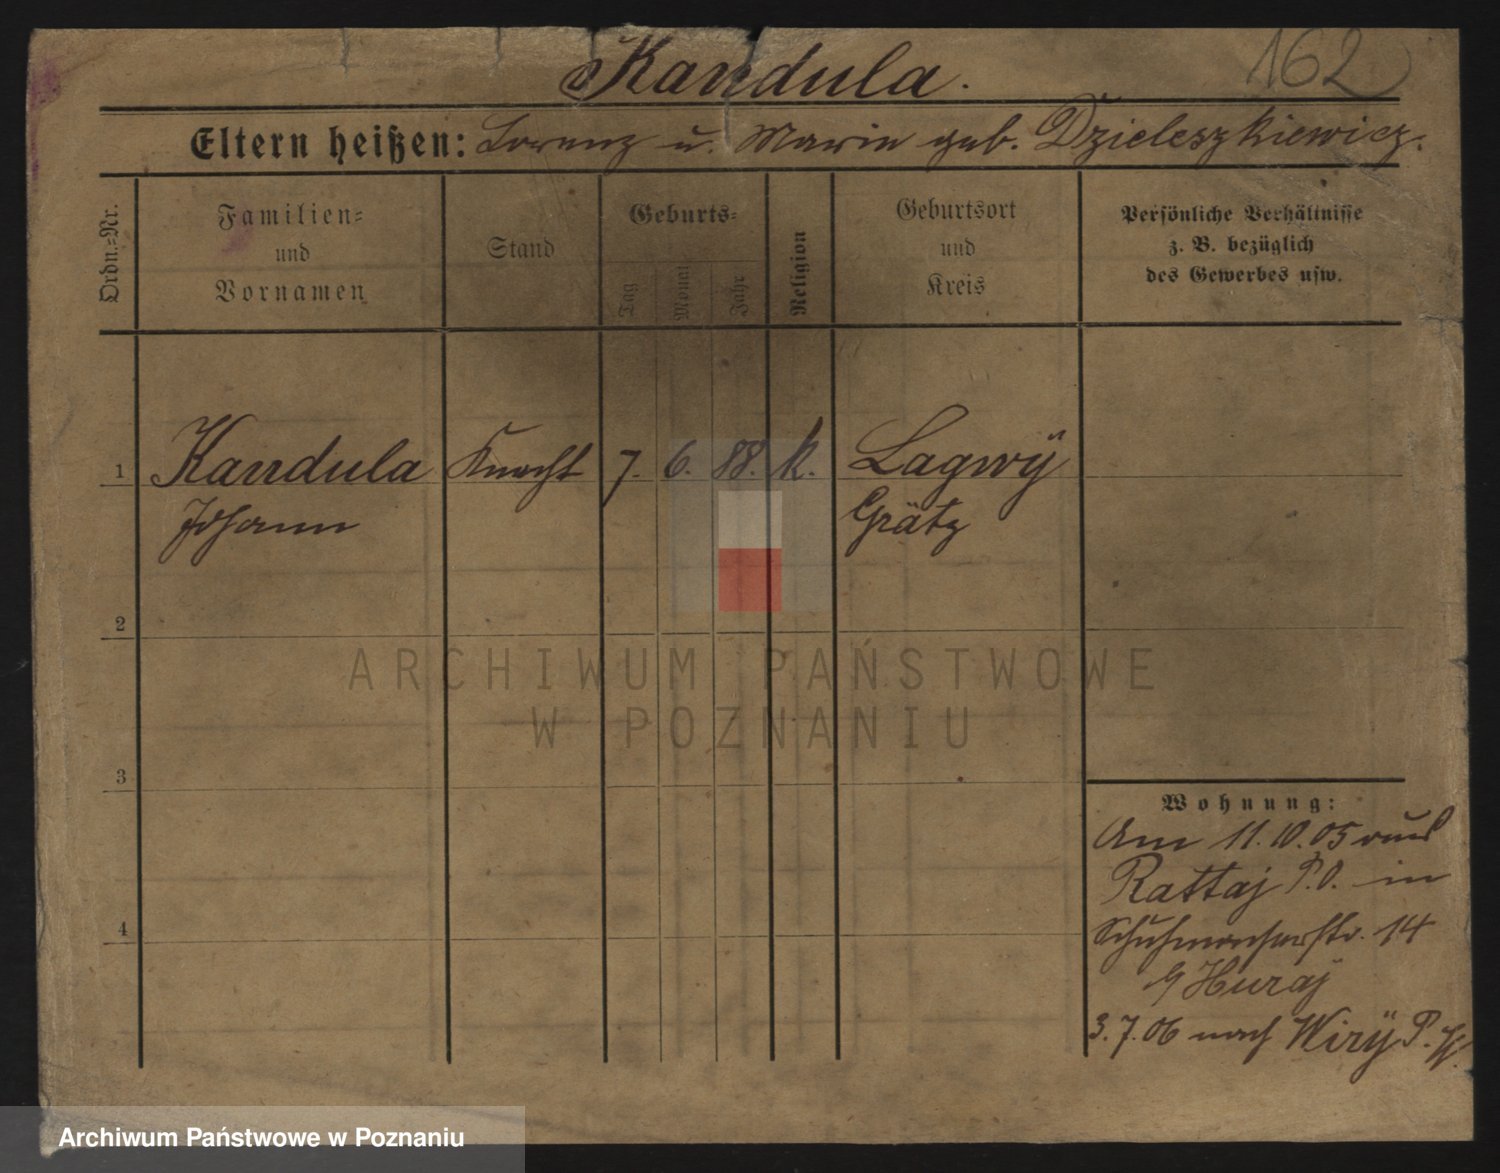 162
Kandula.
Eltern heißen: Lorenz u. Marie geb. Dzieleszkiewicz.
Ordn.=Nr.
Familien=
und
Vornamen
Stand
Geburts=
Tag
Monat
Jahr
Religion
Geburtsort
und
Kreis
Persönliche Verhältnisse
z. B. bezüglich
des Gewerbes usw.
1 Kandula Knecht 7. 6. 88. k. Lagwÿ
Johann Grätz
2
3
4
Wohnung:
Am 11.10.05 aus
Rattaj P.O. in
Schuhmacherstr. 14
b/ Huraj
3.7.06 nach Wirÿ P. W.
ARCHIWUM PAŃSTWOWE
W POZNANIU
Archiwum Państwowe w Poznaniu